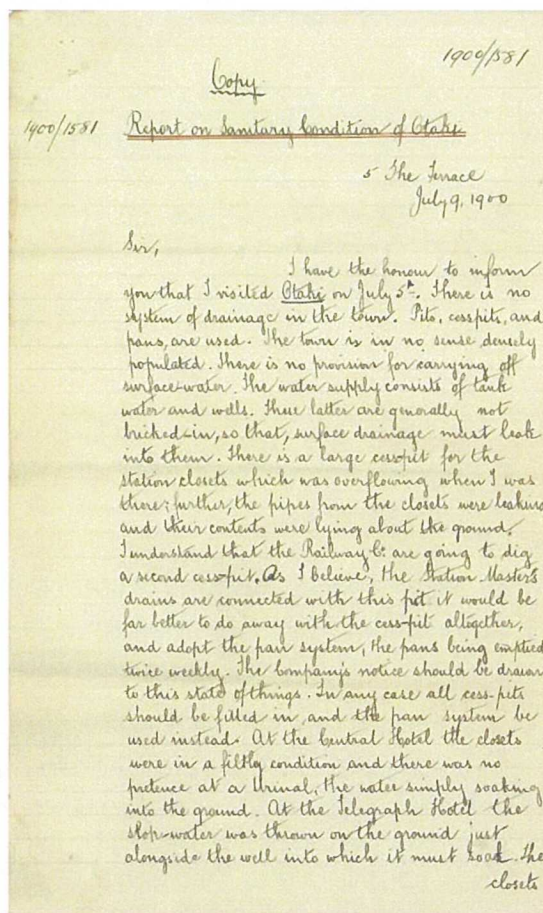 1900/1581
Copy
1900/1581 Report on Sanitary Condition of Otaki
5 The Terrace
July 9, 1900
Sir,
I have the honour to inform
you that I visited Otaki on July 5th. There is no
system of drainage in the town. Pits, cesspits, and
pans, are used. The town is in no sense densely
populated. There is no provision for carrying off
surface-water. The water supply consists of tank
water and wells. These latter are generally not
bricked-in, so that, surface drainage must leak
into them. There is a large cess-pit for the
station closets which was overflowing when I was
there; further, the pipes from the closets were leaking
and their contents were lying about the ground.
I understand that the Railway Co. are going to dig
a second cess-pit. As I believe, the Station Master's
drains are connected with this pit it would be
far better to do away with the cess-pit altogether,
and adopt the pan system, the pans being emptied
twice weekly. The Company's notice should be drawn
to this state of things. In any case all cess-pits
should be filled in, and the pan system be
used instead. At the Central Hotel the closets
were in a filthy condition and there was no
pretence at a urinal, the water simply soaking
into the ground. At the Telegraph Hotel the
slop-water was thrown on the ground just
alongside the well into which it must soak. The
closets